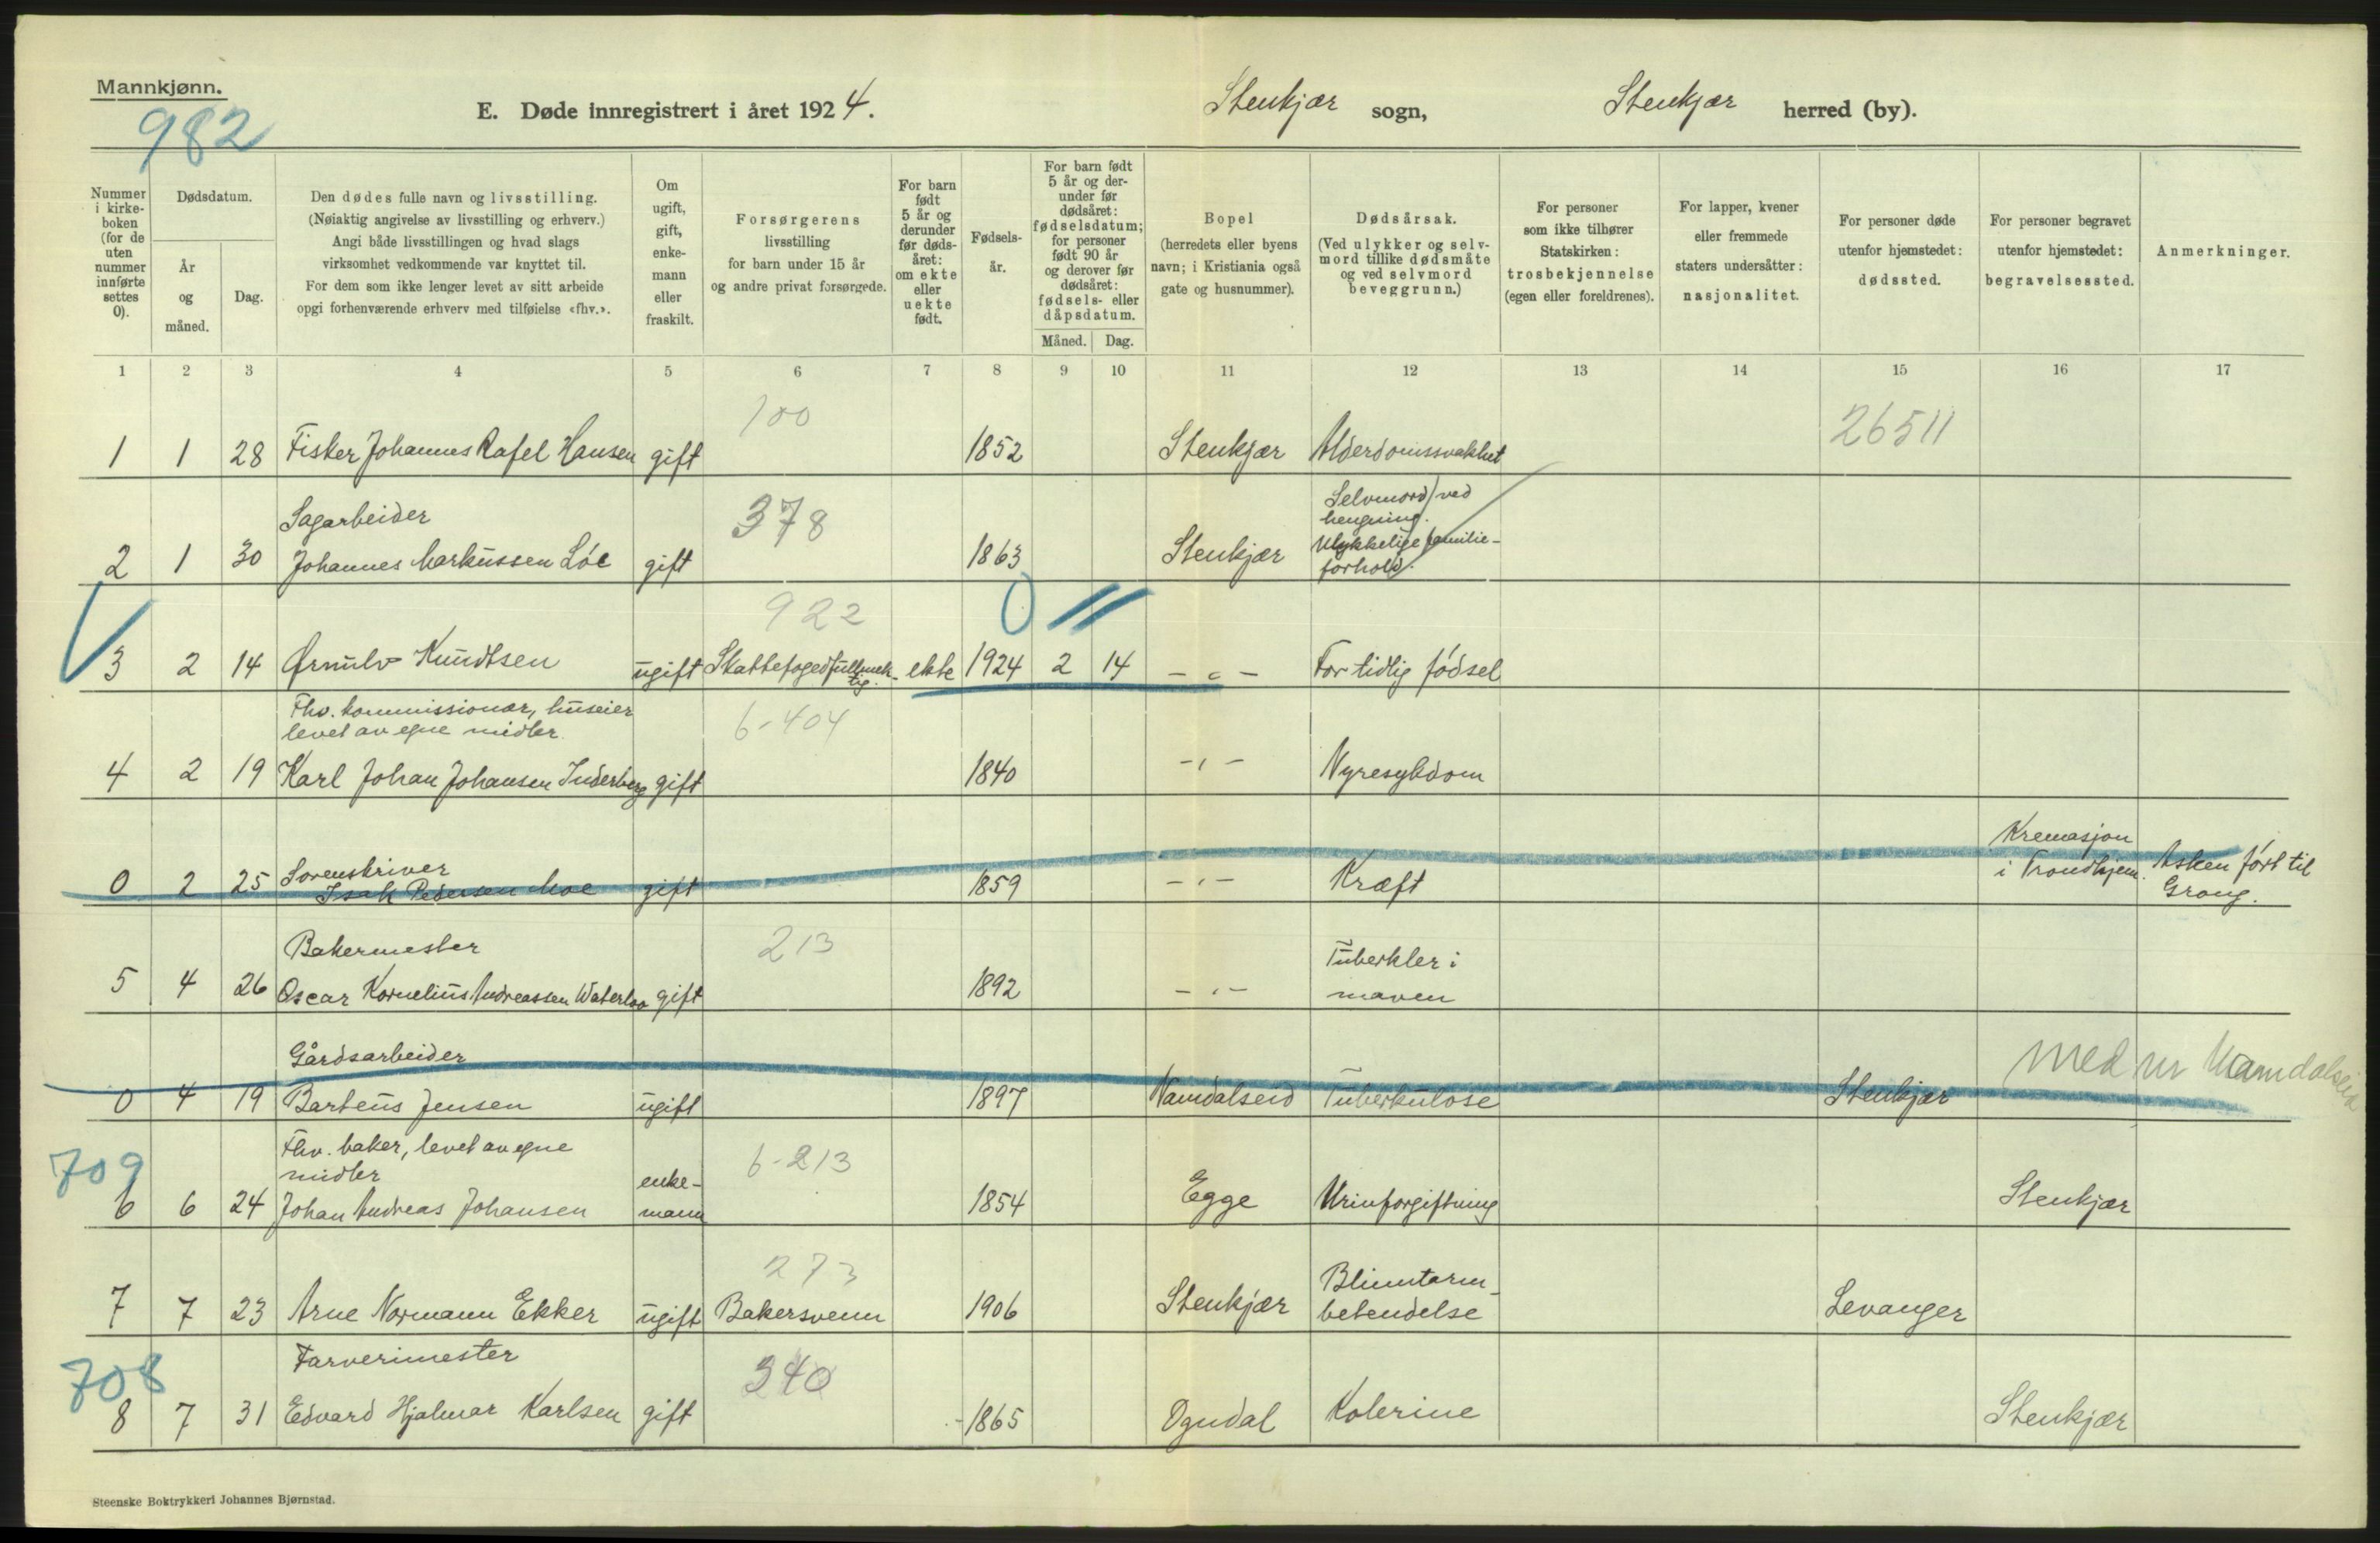 Mannkjønn.
982
E. Døde innregistrert i året 1924.
Stenkjær sogn,
Stenkjær herred (by).
Nummer i kirke-boken (for de uten nummer innførte settes 0).
Dødsdatum.
År og måned.
Dag.
Den dødes fulle navn og livsstilling.
(Nøiaktig angivelse av livsstilling og erhverv.)
Angi både livsstillingen og hvad slags
virksomhet vedkommende var knyttet til.
For dem som ikke lenger levet av sitt arbeide
opgi forhenværende erhverv med tilføielse «fhv.».
Om ugift, gift, enke-mann eller fraskilt.
Forsørgerens
livsstilling
for barn under 15 år
og andre privat forsørgede.
For barn født 5 år og derunder før døds-året: om ekte eller uekte født.
Fødsels-år.
For barn født 5 år og der-under før dødsåret: fødselsdatum; for personer født 90 år og derover før dødsåret: fødsels- eller dåpsdatum.
Måned.
Dag.
Bopel
(herredets eller byens
navn; i Kristiania også
gate og husnummer).
Dødsårsak.
(Ved ulykker og selv-
mord tillike dødsmåte
og ved selvmord
beveggrunn.)
For personer
som ikke tilhører
Statskirken:
trosbekjennelse
(egen eller foreldrenes).
For lapper, kvener
eller fremmede
staters undersåtter:
nasjonalitet.
For personer døde
utenfor hjemstedet:
dødssted.
For personer begravet
utenfor hjemstedet:
begravelsessted.
Anmerkninger.
1 2 3 4 5 6 7 8 9 10 11 12 13 14 15 16 17
100
26511
1 1 28 Fisker Johannes Rafel Hansen gift 1852 Stenkjær Alderdomssvakhet
Sagarbeider 378 Selvmord) ved
hengning.
Ulykkelige familie-
2 1 30 Johannes Markussen Løe gift 1863 Stenkjær forhold.
922 0 //
3 2 14 Ørnulv Knudtsen ugift Skattefogedfullmek-tig. ekte 1924 2 14 - " - For tidlig fødsel
Fhv. kommissionær, huseier
levet av egne midler. 6-404
4 2 19 Karl Johan Johansen Inderberg gift 1840 - " - Nyresykdom
Sorenskriver Kremasjon
0 2 25 Isak Pedersen Moe gift 1859 - " - Kræft i Trondhjem. Asken ført til
Grong.
Bakermester 213 Tuberkler i
5 4 26 Oscar Kornelius Andreassen Waterloo gift 1892 - " - maven
Gårdsarbeider
med nr Namdalseid
0 4 19 Barteus Jensen ugift 1897 Namdalseid Tuberkulose Stenkjær
Fhv. baker, levet av egne
midler 6-213
709
6 6 24 Johan Andreas Johansen enke-mann 1854 Egge Urinforgiftning Stenkjær
273 Blinntarm-
7 7 23 Arne Normann Ekker ugift Bakersvenn 1906 Stenkjær betendelse Levanger
Farverimester 340
708
8 7 31 Edvard Hjalmar Karlsen gift 1865 Ogndal Kolerine Stenkjær
Steenske Boktrykkeri Johannes Bjørnstad.